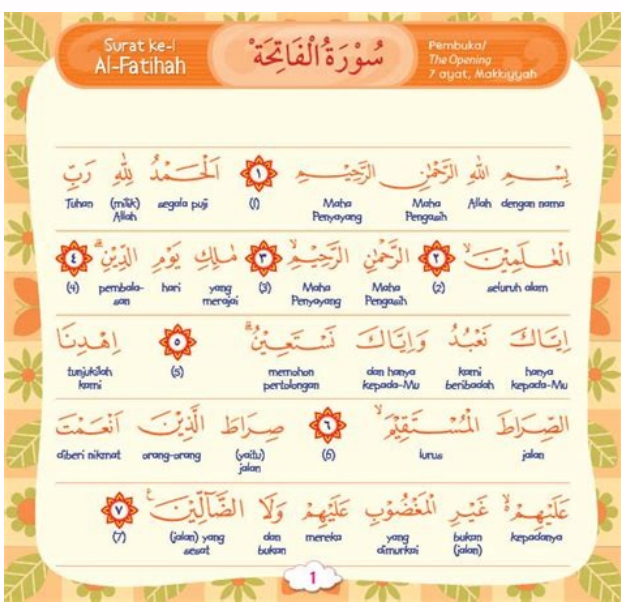 Surat ke-1
Al-Fatihah
سُوْرَةُ الْفَاتِحَةْ
Pembuka/
The Opening
7 ayat, Makkiyyah
بِسْمِ اللّٰهِ الرَّحْمٰنِ الرَّحِيْمِ ١ اَلْحَمْدُ لِلّٰهِ رَبِّ
dengan nama Allah Maha Pengasih Maha Penyayang (1) segala puji (milik) Allah Tuhan
الْعٰلَمِيْنَۙ ٢ الرَّحْمٰنِ الرَّحِيْمِۙ ٣ مٰلِكِ يَوْمِ الدِّيْنِۗ ٤
seluruh alam (2) Maha Pengasih Maha Penyayang (3) yang merajai hari pembala-san (4)
اِيَّاكَ نَعْبُدُ وَاِيَّاكَ نَسْتَعِيْنُۗ ٥ اِهْدِنَا
hanya kepada-Mu kami beribadah dan hanya kepada-Mu memohon pertolongan (5) tunjukilah kami
الصِّرَاطَ الْمُسْتَقِيْمَۙ ٦ صِرَاطَ الَّذِيْنَ اَنْعَمْتَ
jalan lurus (6) (yaitu) jalan orang-orang diberi nikmat
عَلَيْهِمْۙ غَيْرِ الْمَغْضُوْبِ عَلَيْهِمْ وَلَا الضَّاۤلِّيْنَࣖ ٧
kepadanya bukan (jalan) yang dimurkai mereka dan bukan (jalan) yang sesat (7)
1